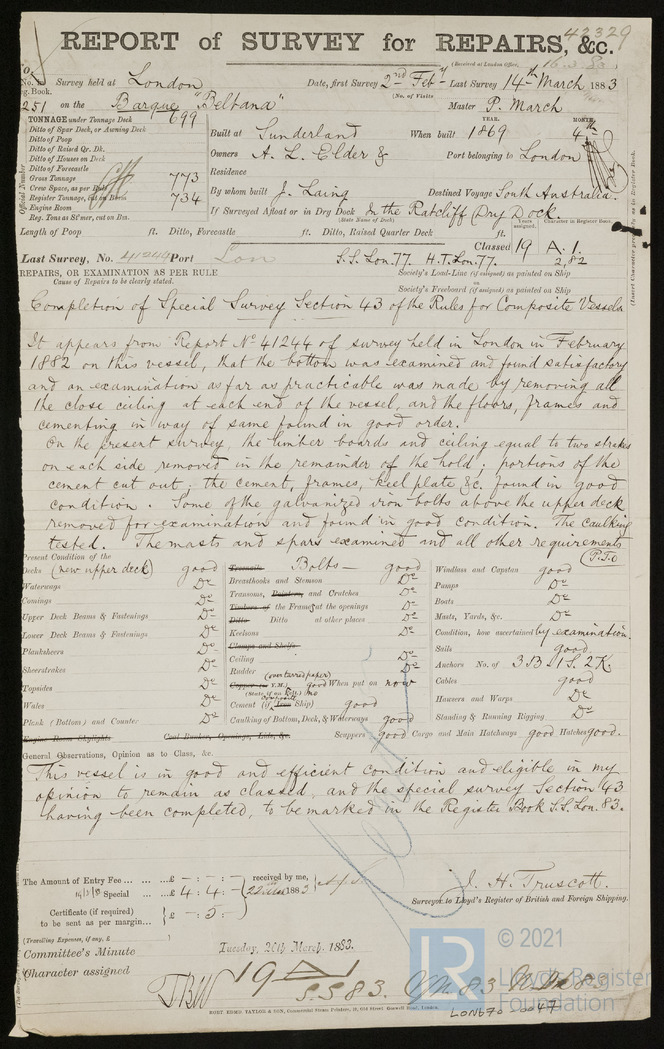 42329
REPORT of SURVEY for REPAIRS, &c.
(Received at London Office, 16.3.83)
No. in Reg. Book. Survey held at London Date, first Survey 2nd Feby Last Survey 14th March 1883
(No. of Visits)
251 on the Barque "Beltana" Master P. March
TONNAGE under Tonnage Deck 699
Ditto of Spar Deck, or Awning Deck
Ditto of Poop
Ditto of Raised Qr. Dk.
Ditto of Houses on Deck
Ditto of Forecastle
Gross Tonnage 773
Crew Space, as per Rule
Register Tonnage, cut on Beam 734
Engine Room
Reg. Tons as St'mer, cut on Bm.
Official Number
YEAR. MONTH.
Built at Sunderland When built 1869 4th
Owners A. L. Elder & Port belonging to London
Residence
By whom built J. Laing Destined Voyage South Australia.
If Surveyed Afloat or in Dry Dock In the Ratcliff Dry Dock.
(State Name of Dock)
Length of Poop ft. Ditto, Forecastle ft. Ditto, Raised Quarter Deck ft.
Years assigned. Character in Register Book.
Classed 19 A. 1.
2,82
Last Survey, No. 41244 Port Lon S.S. Lon. 77. H.T. Lon. 77.
REPAIRS, OR EXAMINATION AS PER RULE
Cause of Repairs to be clearly stated.
Society's Load-Line (if assigned) as painted on Ship
Society's Freeboard (if assigned) as painted on Ship
Completion of Special Survey Section 43 of the Rules for Composite Vessels
It appears from Report No 41244 of survey held in London in February
1882 on this vessel, that the bottom was examined and found satisfactory
and an examination as far as practicable was made by removing all
the close ceiling at each end of the vessel, and the floors, frames and
cementing in way of same found in good order.
On the present survey, the limber boards and ceiling equal to two strakes
on each side removed in the remainder of the hold; portions of the
cement cut out; the cement, frames, keel plate &c. found in good
condition. Some of the galvanized iron bolts above the upper deck
removed for examination and found in good condition. The caulking
tested. The masts and spars examined and all other requirements
(P.T.O
Present Condition of the
Decks (new upper deck) good
Waterways Do
Comings Do
Upper Deck Beams & Fastenings Do
Lower Deck Beams & Fastenings Do
Planksheers Do
Sheerstrakes Do
Topsides Do
Wales Do
Plank (Bottom) and Counter Do
Engine Room Skylights Coal Bunker, Openings, Lids, &c.
Treenails Bolts — good
Breasthooks and Stemson Do
Transoms, Pointers, and Crutches Do
Timbers of the Frame at the openings Do
Ditto Ditto at other places Do
Keelsons Do
Clamps and Shelfs
Ceiling Do
Rudder Do
(over tarred paper)
Copper or Y.M.) good When put on now
(State if on Felt.) no
Composite
Cement (if Iron Ship) good
Caulking of Bottom, Deck, & Waterways good
Scuppers good Cargo and Main Hatchways good Hatches good.
Windlass and Capstan good
Pumps Do
Boats Do
Masts, Yards, &c. Do
Condition, how ascertained by examination.
Sails good
Anchors No. of 3 B 1 S. 2 K.
Cables good
Hawsers and Warps Do
Standing & Running Rigging Do
General Observations, Opinion as to Class, &c.
This vessel is in good and efficient condition and eligible in my
opinion to remain as classed, and the special survey Section 43
having been completed, to be marked in the Register Book S.S. Lon. 83.
The Amount of Entry Fee £ - : - : - received by me,
Special £ 4 : 4 : - 22 Mar 1883
Certificate (if required) to be sent as per margin £ - 5 : -
(Travelling Expenses, if any, £
J. H. Truscott.
Surveyor to Lloyd's Register of British and Foreign Shipping.
Committee's Minute Tuesday, 20th March, 1883.
Character assigned 19 A 1
S.S 83.
© 2021
LR
Lloyd's Register
Foundation
LON670-0047